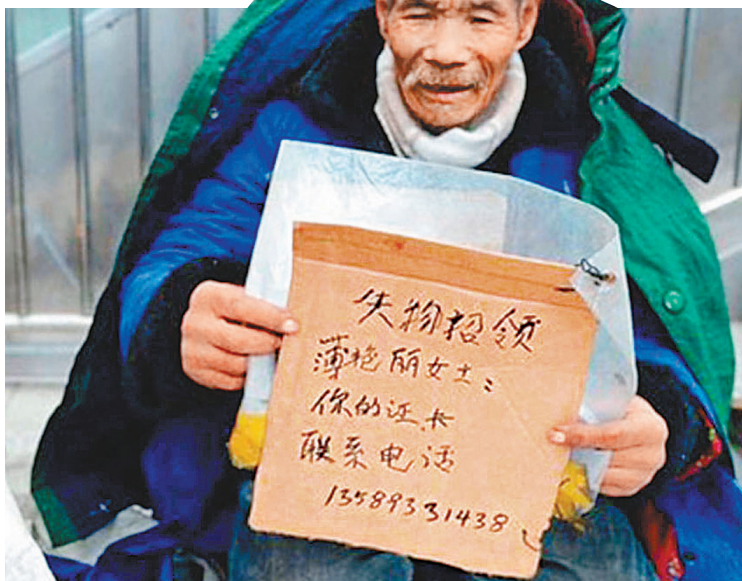 失物招领
薄艳丽女士：
你的证卡
联系电话
13589331438